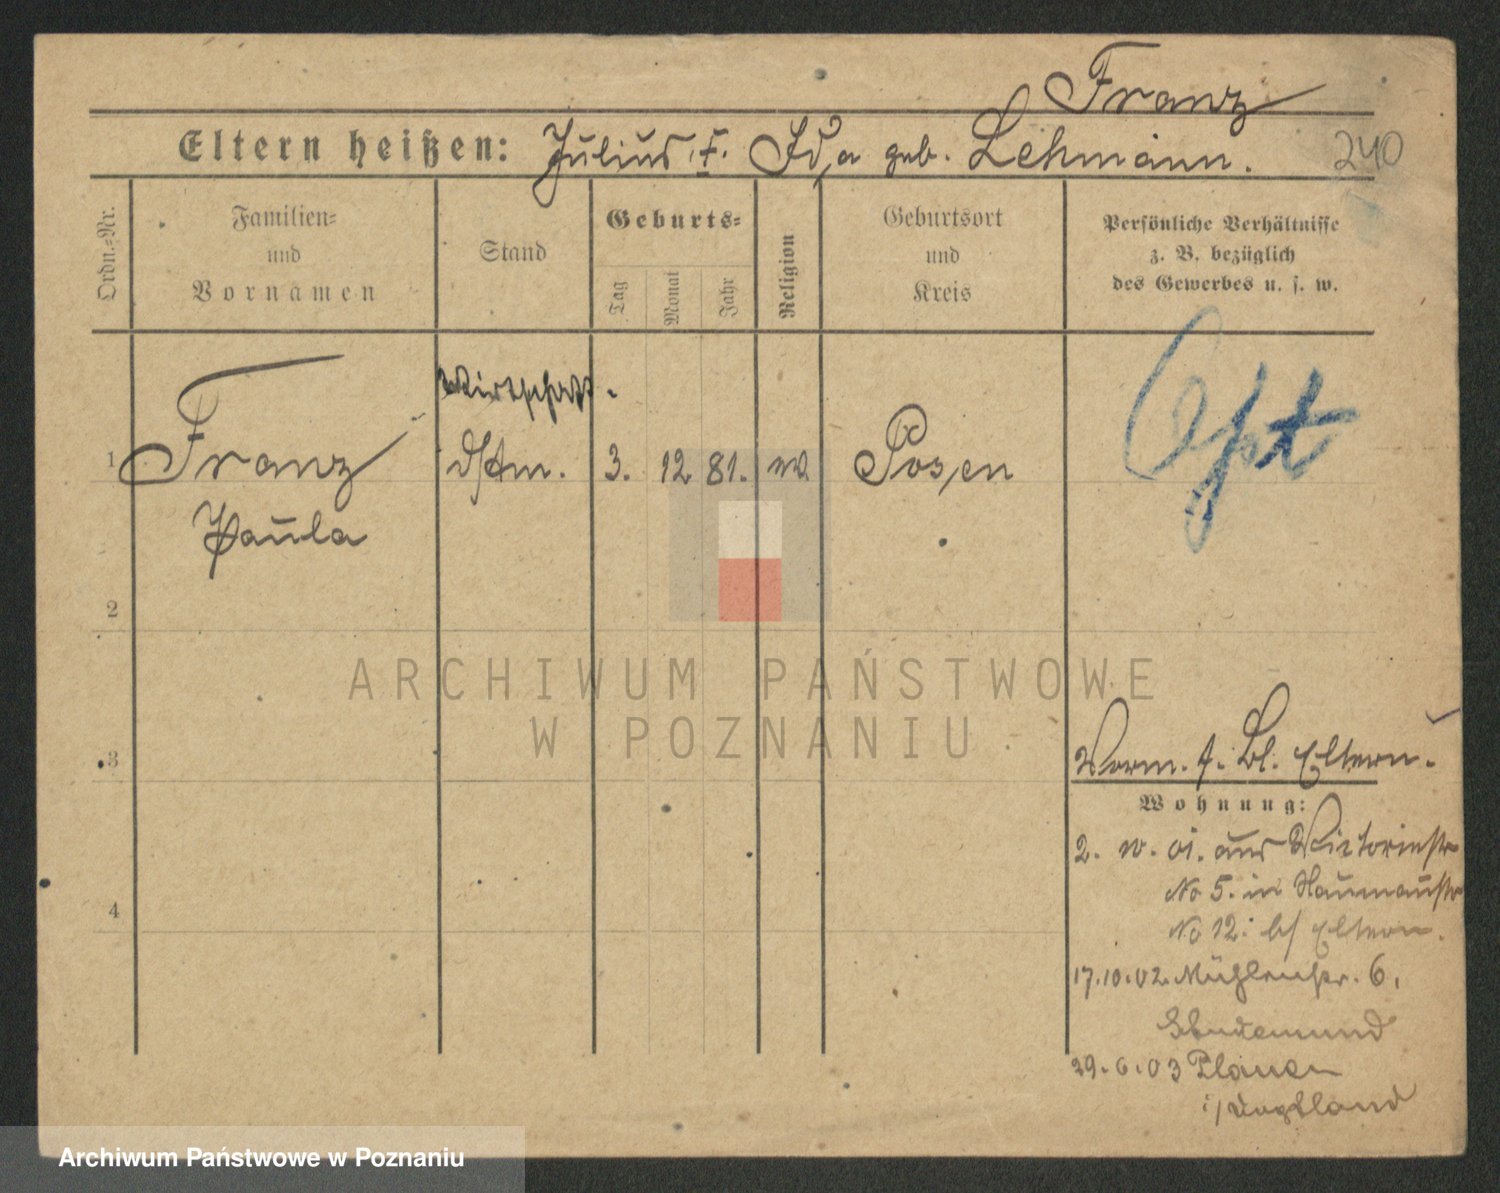 Franz
Eltern heißen: Julius †. Ida geb. Lehmann.
240
Ordn.=Nr.
Familien=
und
Vornamen
Stand
Geburts=
Tag
Monat
Jahr
Religion
Geburtsort
und
Kreis
Persönliche Verhältnisse
z. B. bezüglich
des Gewerbes u. s. w.
Wirtschaft.
1 Franz 3. 12 81. Posen
Paula
2
3
4
ARCHIWUM PAŃSTWOWE
W POZNANIU
Vorm. f. Bl. Eltern.
Wohnung:
2. 01. aus Victoriastr
No 5. in Naumannstr
No 12. b/ Eltern.
17.10.02. Mühlenstr. 6.
29.6.03 Plauen
i/ Vogtland
Archiwum Państwowe w Poznaniu